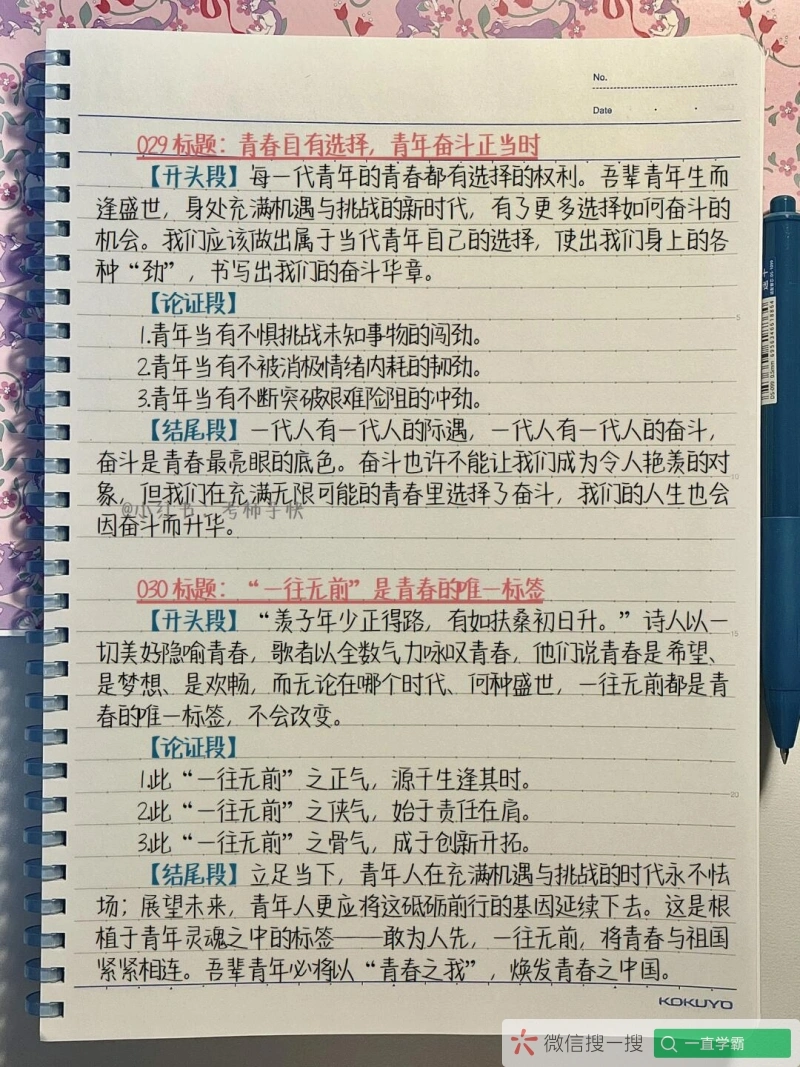 No.
Date
029标题：青春自有选择，青年奋斗正当时
【开头段】每一代青年的青春都有选择的权利。吾辈青年生而
逢盛世，身处充满机遇与挑战的新时代，有了更多选择如何奋斗的
机会。我们应该做出属于当代青年自己的选择，使出我们身上的各
种“劲”，书写出我们的奋斗华章。
【论证段】
1.青年当有不惧挑战未知事物的闯劲。
2.青年当有不被消极情绪内耗的韧劲。
3.青年当有不断突破艰难险阻的冲劲。
【结尾段】一代人有一代人的际遇，一代人有一代人的奋斗，
奋斗是青春最亮眼的底色。奋斗也许不能让我们成为令人艳羡的对
象，但我们在充满无限可能的青春里选择了奋斗，我们的人生也会
@小红书·考神手快
因奋斗而升华。
030标题：“一往无前”是青春的唯一标签
【开头段】“羡子年少正得路，有如扶桑初日升。”诗人以一
切美好隐喻青春，歌者以全数气力咏叹青春，他们说青春是希望、
是梦想、是欢畅，而无论在哪个时代、何种盛世，一往无前都是青
春的唯一标签，不会改变。
【论证段】
1.此“一往无前”之正气，源于生逢其时。
2.此“一往无前”之侠气，始于责任在肩。
3.此“一往无前”之骨气，成于创新开拓。
【结尾段】立足当下，青年人在充满机遇与挑战的时代永不怯
场；展望未来，青年人更应将这砥砺前行的基因延续下去。这是根
植于青年灵魂之中的标签——敢为人先，一往无前，将青春与祖国
紧紧相连。吾辈青年必将以“青春之我”，焕发青春之中国。
5
10
15
20
KOKUYO
微信搜一搜
一直学霸